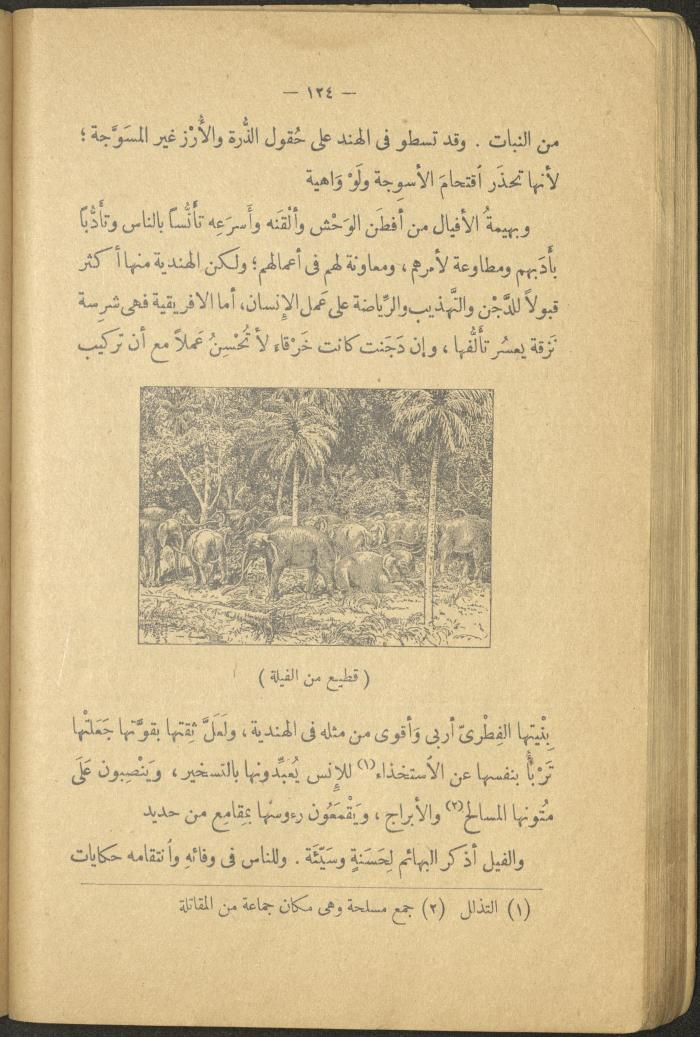 — ١٢٤ —
من النبات . وقد تسطو فى الهند على حُقول الذُّرة والأُرْز غير المسَوَّجة ؛
لأنها تحذَر اُقتحامَ الأسوِجة ولَوْ وَاهية
وبهيمةُ الأفيال من أفطَن الوَحْش وألْقَنه وأَسرَعِه تأنُّساً بالناس وتأَدُّباً
بأَدَبهم ومطاوعة لأمرهم ، ومعاونة لهم فى أعمالهم ؛ ولكن الهندية منها أكثر
قبولاً للدَّجْن والتَّهذيب والرِّياضة على عَمل الإنسان، أما الافريقية فهى شرِسة
نَزقة يعسُر تأَلُّفها ، وإن دَجَنت كانت خَرْقاء لا تُحْسِنُ عَملاً مع أن تركيب
( قطيع من الفيلة )
بِنْيتها الفِطْرىّ أربى وَأقوى من مثله فى الهندية ، ولَعَلَّ ثِقتها بقوَّتها جَعَلتْها
تَرْبأُ بنفسها عن الاُستخذاء(١) للإنس يُعبِّدونها بالتسخير ، ويَنْصِبون عَلَى
مُتونها المسالح(٢) والأبراج ، ويَقْمَعُون رءوسها بِمقامِع من حديد
والفيل أذكر البهائم لِحَسَنةٍ وسَيِّئَة . وللناس فى وفائه واُنتقامه حكايات
(١) التذلل (٢) جمع مسلحة وهى مكان جماعة من المقاتلة